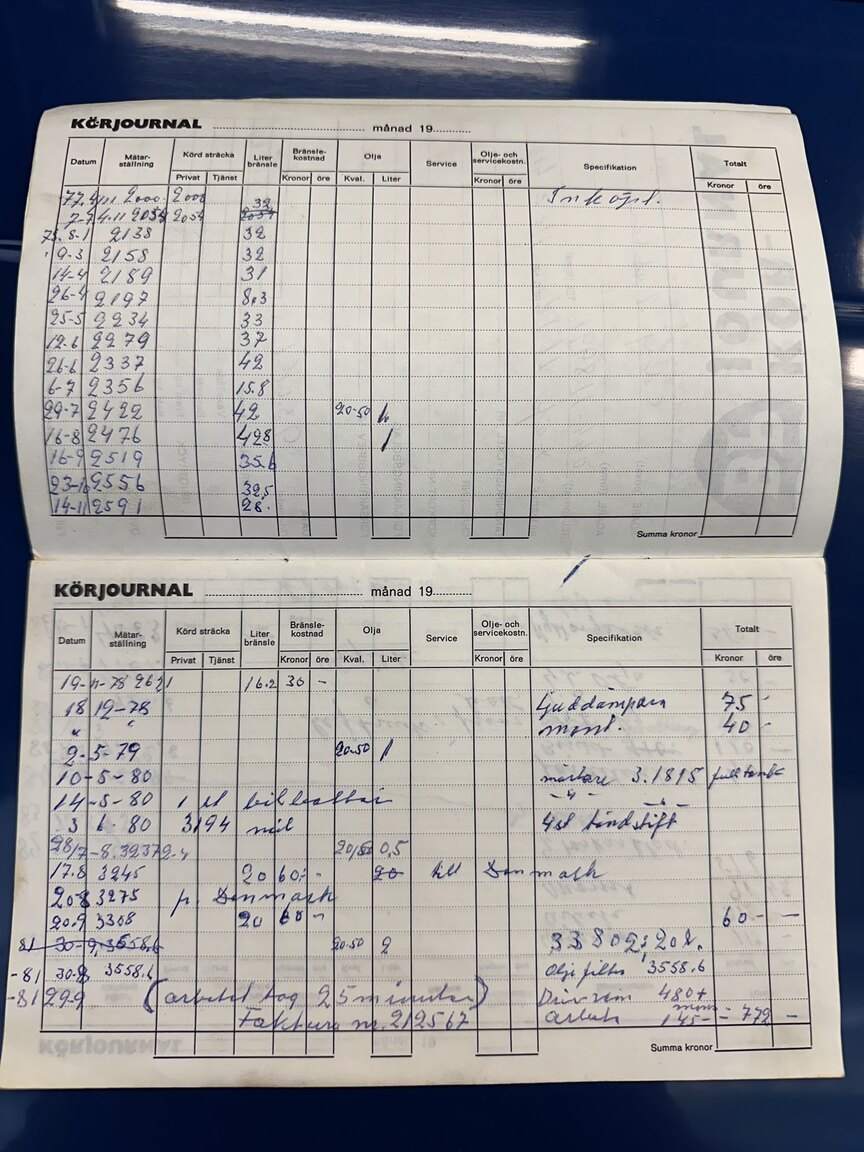 KÖRJOURNAL månad 19
Datum Mätar-ställning Körd sträcka Liter bränsle Bränsle-kostnad Olja Service Olje- och servicekostn. Specifikation Totalt
Privat Tjänst Kronor öre Kval. Liter Kronor öre Kronor öre
77.4/11 2000 2000 32 Inköpt.
4.11 2054 2054
8-1 2138 32
9-3 2158 32
14-4 2189 31
26-4 2197 8,3
25-5 2234 33
12-6 2279 37
26-6 2337 42
6-7 2356 15.8
29-7 2422 42 20-50
16-8 2476 428 1
16-9 2519 35.6
23-10 2556 32,5
14-11 2591 28.
Summa kronor
KÖRJOURNAL månad 19
Datum Mätar-ställning Körd sträcka Liter bränsle Bränsle-kostnad Olja Service Olje- och servicekostn. Specifikation Totalt
Privat Tjänst Kronor öre Kval. Liter Kronor öre Kronor öre
19-11-78 2621 16.2 30 -
18 12-78 Ljuddämpare 75 -
" " mont. 40 -
2-5-79 20-50 1
10-5-80 mätare 3.1895 fulltank
14-5-80 1 st bilbatteri
3 6-80 3194 mil 4st tändstift
28/7 20/50 0,5
17.8 3245 20 60:- 20 till Danmark
20-8 3275 p. Danmark
20.9 3308 20 60 - 60 - -
81 30-9, 3558.6 20-50 2 33802:20k.
-81 30-8 3558.6 Oljefilter 3558.6
-81 29-9 (arbetet tog 25 minuter) Drivrem 480+
Faktura nr. 212567 arbete 145- = 772 -
Summa kronor